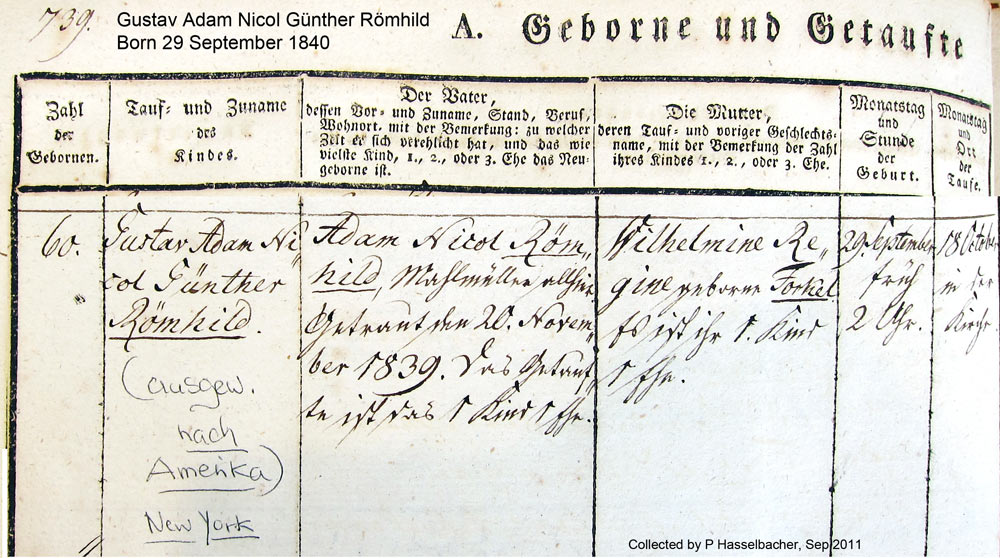 739.
Gustav Adam Nicol Günther Römhild
Born 29 September 1840
A. Geborne und Getaufte
Zahl
der
Gebornen.
Tauf- und Zuname
des
Kindes.
Der Vater,
dessen Vor- und Zuname, Stand, Beruf,
Wohnort, mit der Bemerkung: zu welcher
Zeit er sich verehlicht hat, und das wie
vielste Kind, 1., 2., oder 3. Ehe das Neu-
geborne ist.
Die Mutter,
deren Tauf- und voriger Geschlechts-
name, mit der Bemerkung der Zahl
ihres Kindes 1., 2., oder 3. Ehe.
Monatstag
und
Stunde
der
Geburt.
Monatstag
und
Ort
der
Taufe.
60.
Gustav Adam Ni-
col Günther
Römhild.
(ausgew.
nach
Amerika)
New York
Adam Nicol Röm-
hild, Mahlmüller allhier
Getraut den 20. Novem-
ber 1839. Das Getauf-
te ist das 1 Kind 1 Ehe.
Wilhelmine Re-
gine geborne Forkel
Es ist ihr 1. Kind
1 Ehe.
29. September
früh
2 Uhr.
18 October
in der
Kirche
Collected by P Hasselbacher, Sep 2011